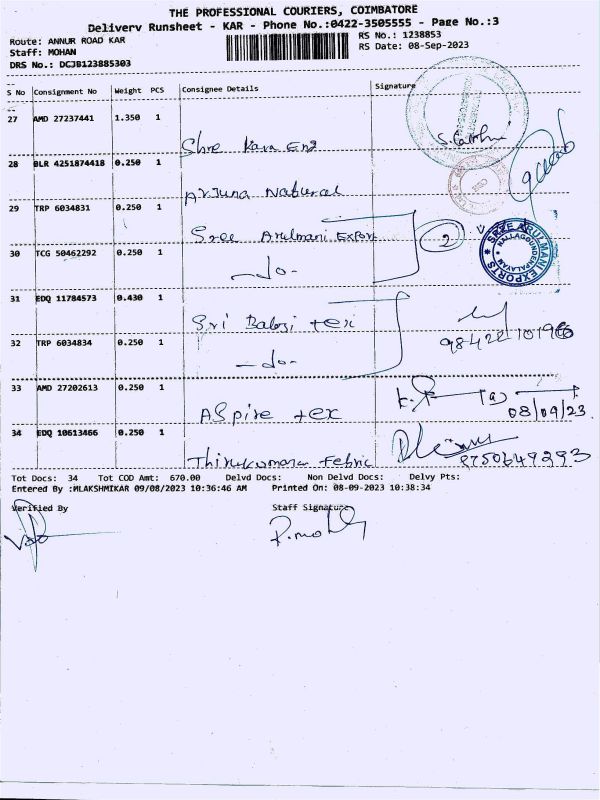 THE PROFESSIONAL COURIERS, COIMBATORE
Delivery Runsheet - KAR - Phone No.:0422-3505555 - Page No.:3
Route: ANNUR ROAD KAR
RS No.: 1238853
Staff: MOHAN
RS Date: 08-Sep-2023
DRS No.: DCJB123885303
S No Consignment No Weight PCS Consignee Details Signature
27 AMD 27237441 1.350 1
Shre Kara Eng
28 BLR 4251874418 0.250 1
Arjuna Natural
29 TRP 6034831 0.250 1
Sree Arulmani Export
2
SREE ARULMANI EXPORTS
NALLAGOUNDENPALAYAM
30 TCG 50462292 0.250 1
-do-
31 EDQ 11784573 0.430 1
Sri Balaji tex
32 TRP 6034834 0.250 1
-do-
33 AMD 27202613 0.250 1
Aspire tex
08/09/23
34 EDQ 10613466 0.250 1
Thirukumaran Febric
9750649293
Tot Docs: 34 Tot COD Amt: 670.00 Delvd Docs: Non Delvd Docs: Delvy Pts:
Entered By :MLAKSHMIKAR 09/08/2023 10:36:46 AM Printed On: 08-09-2023 10:38:34
Verified By Staff Signature